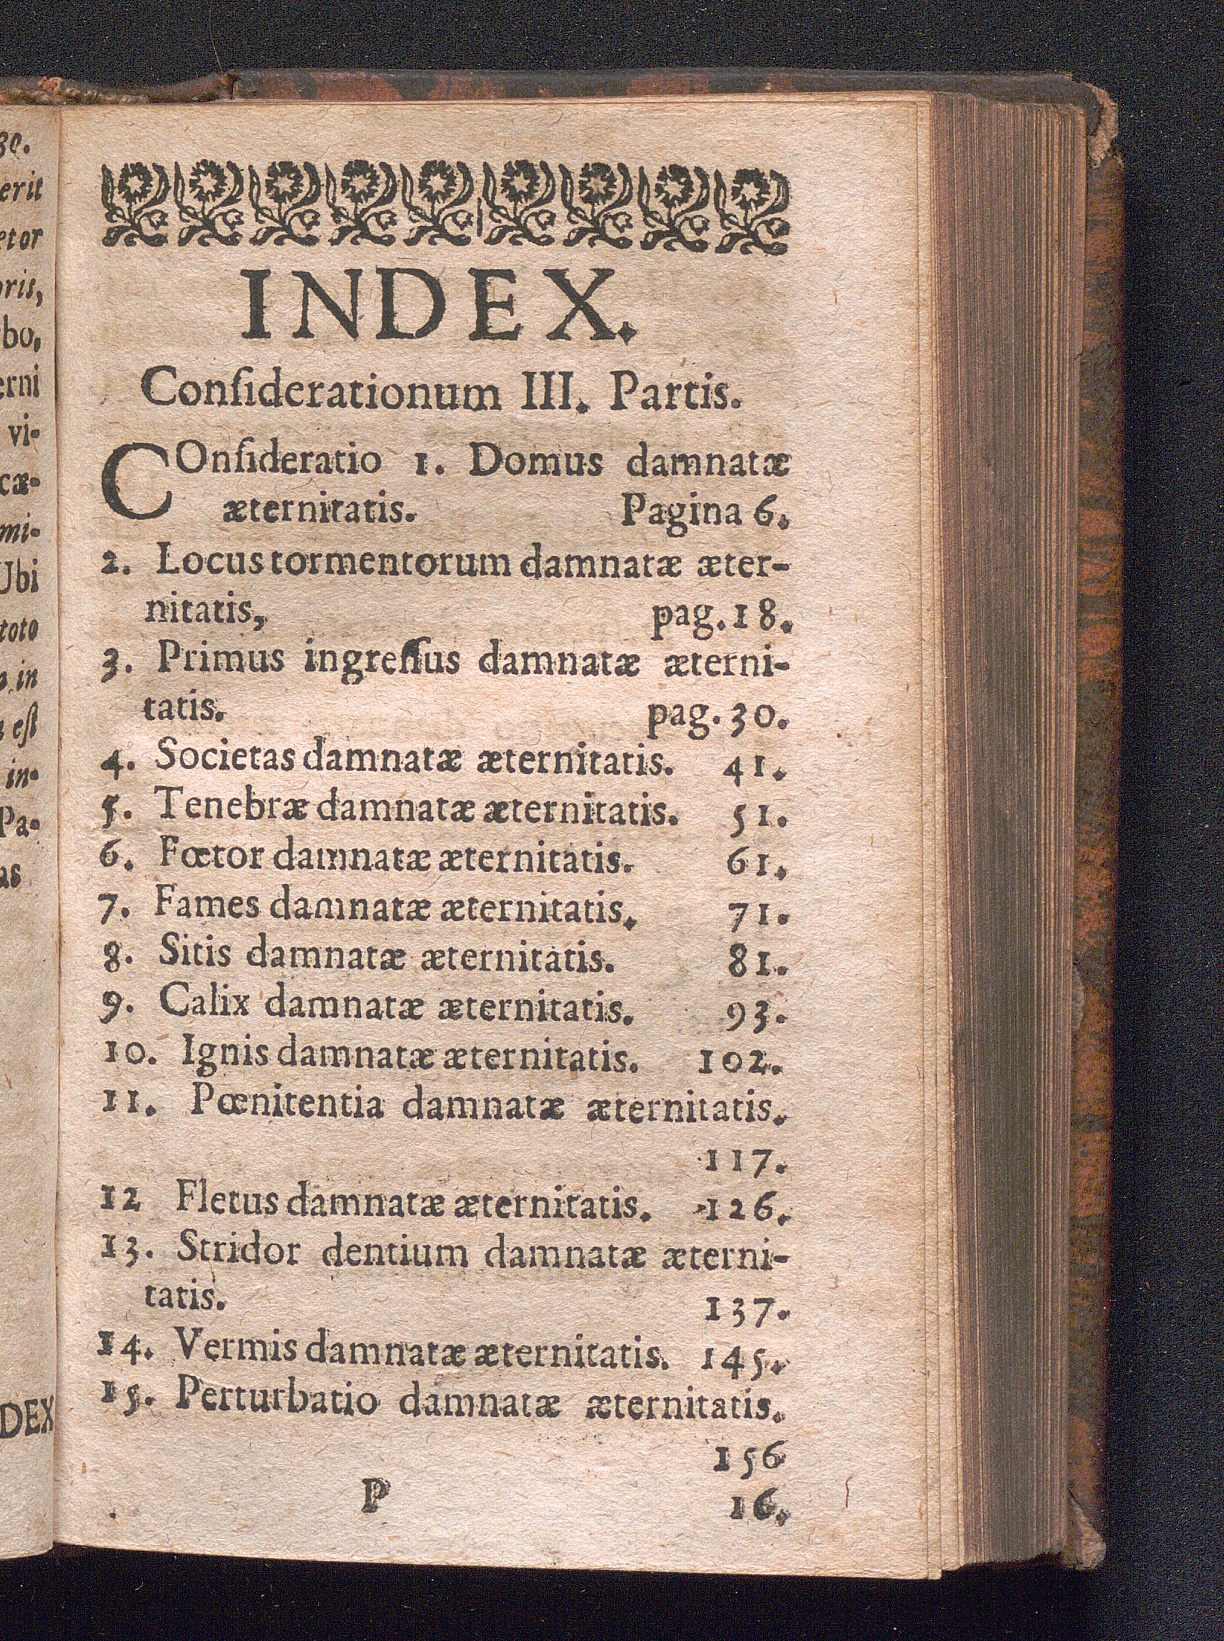 30.
erit
etor
oris,
bo,
erni
vi-
cæ-
mi-
Ubi
toto
in
est
in-
Pa-
as
DEX
INDEX.
Conſiderationum III. Partis.
COnſideratio 1. Domus damnatæ
æternitatis. Pagina 6.
2. Locus tormentorum damnatæ æter-
nitatis, pag. 18.
3. Primus ingreſſus damnatæ æterni-
tatis. pag. 30.
4. Societas damnatæ æternitatis. 41.
5. Tenebræ damnatæ æternitatis. 51.
6. Fœtor damnatæ æternitatis. 61.
7. Fames damnatæ æternitatis. 71.
8. Sitis damnatæ æternitatis. 81.
9. Calix damnatæ æternitatis. 93.
10. Ignis damnatæ æternitatis. 102.
11. Pœnitentia damnatæ æternitatis.
117.
12 Fletus damnatæ æternitatis. 126.
13. Stridor dentium damnatæ æterni-
tatis. 137.
14. Vermis damnatæ æternitatis. 145.
15. Perturbatio damnatæ æternitatis.
156
P 16.